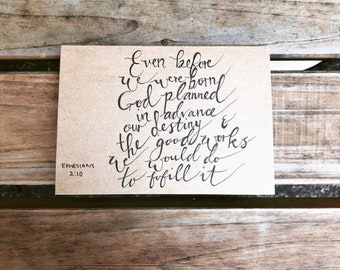 Even before
we were born
God planned
in advance
our destiny &
the good works
we would do
to fulfill it
EPHESIANS
2:10